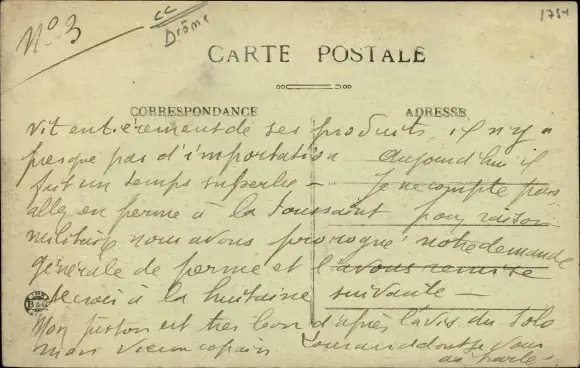 N° 3
Drôme
1754
CARTE POSTALE
CORRESPONDANCE
ADRESSE
vit entièrement de ses produits, il n'y a
presque pas d'importation aujourd'hui il
fait un temps superbe - je ne compte pas
aller en perme à la Toussaint pour raison
militaire nous avons prorogé notre demande
générale de perme et l'avons remise
à la huitaine suivante -
Mon piston est très bon d'après l'avis du solo
mon vieux copain dont je vous
ai parlé.
B&G